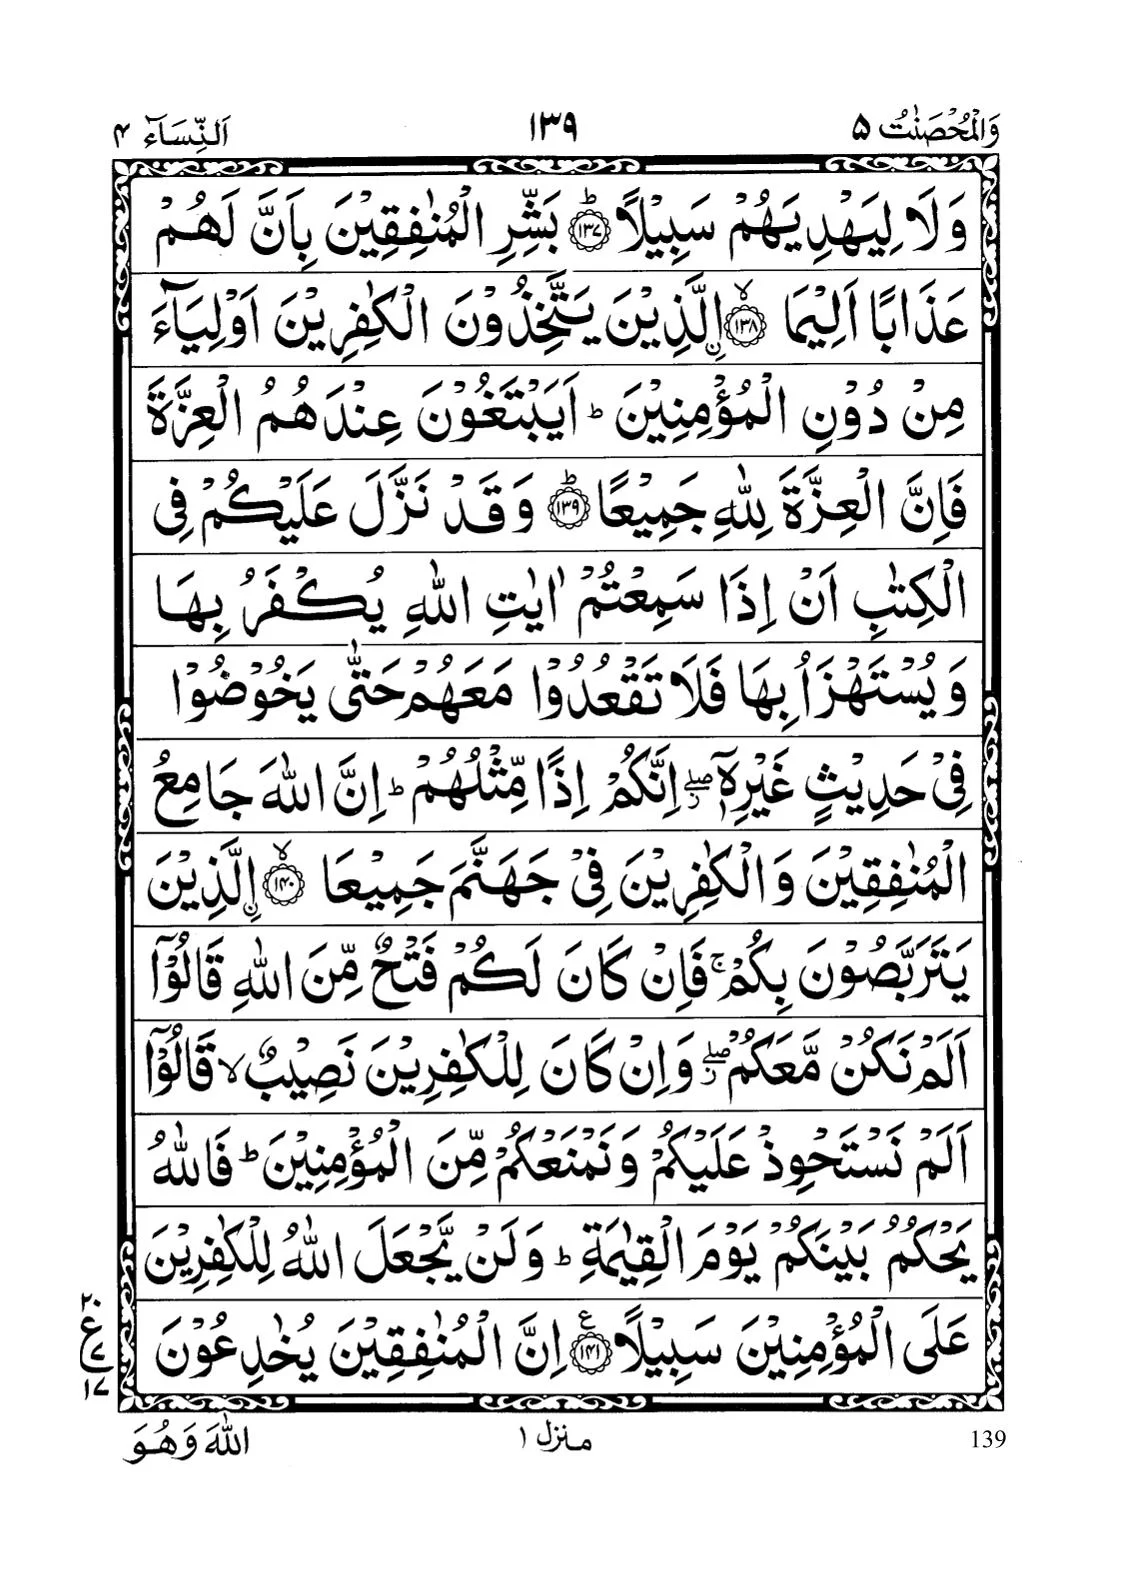 وَالْمُحْصَنٰتُ ۵
۱۳۹
اَلنِّسَآء ۴
وَلَا لِيَهْدِيَهُمْ سَبِيْلًا ؕ‏﴿۱۳۷﴾ بَشِّرِ الْمُنٰفِقِيْنَ بِاَنَّ لَهُمْ
عَذَابًا اَلِيْمَا ۙ‏﴿۱۳۸﴾ اۨلَّذِيْنَ يَتَّخِذُوْنَ الْكٰفِرِيْنَ اَوْلِيَآءَ
مِنْ دُوْنِ الْمُؤْمِنِيْنَ‌ ؕ اَيَبْتَغُوْنَ عِنْدَهُمُ الْعِزَّةَ
فَاِنَّ الْعِزَّةَ لِلّٰهِ جَمِيْعًا ؕ‏﴿۱۳۹﴾ وَقَدْ نَزَّلَ عَلَيْكُمْ فِى
الْكِتٰبِ اَنْ اِذَا سَمِعْتُمْ اٰيٰتِ اللّٰهِ يُكْفَرُ بِهَا
وَيُسْتَهْزَاُ بِهَا فَلَا تَقْعُدُوْا مَعَهُمْ حَتّٰى يَخُوْضُوْا
فِىْ حَدِيْثٍ غَيْرِهٖۤ ‌ۖ اِنَّكُمْ اِذًا مِّثْلُهُمْ‌ ؕ اِنَّ اللّٰهَ جَامِعُ
الْمُنٰفِقِيْنَ وَالْكٰفِرِيْنَ فِىْ جَهَنَّمَ جَمِيْعَا ۙ‏﴿۱۴۰﴾ اۨلَّذِيْنَ
يَتَرَبَّصُوْنَ بِكُمْ‌ ۚ فَاِنْ كَانَ لَكُمْ فَتْحٌ مِّنَ اللّٰهِ قَالُوْۤا
اَلَمْ نَكُنْ مَّعَكُمْ ‌ۖ وَاِنْ كَانَ لِلْكٰفِرِيْنَ نَصِيْبٌ ۙ قَالُوْۤا
اَلَمْ نَسْتَحْوِذْ عَلَيْكُمْ وَنَمْنَعْكُمْ مِّنَ الْمُؤْمِنِيْنَ‌ ؕ فَاللّٰهُ
يَحْكُمُ بَيْنَكُمْ يَوْمَ الْقِيٰمَةِ‌ ؕ وَلَنْ يَّجْعَلَ اللّٰهُ لِلْكٰفِرِيْنَ
عَلَى الْمُؤْمِنِيْنَ سَبِيْلًا ‏﴿۱۴۱﴾ ع اِنَّ الْمُنٰفِقِيْنَ يُخٰدِعُوْنَ
۲۰
ع
۷
۱۷
اللّٰهَ وَهُوَ
منزل ۱
139